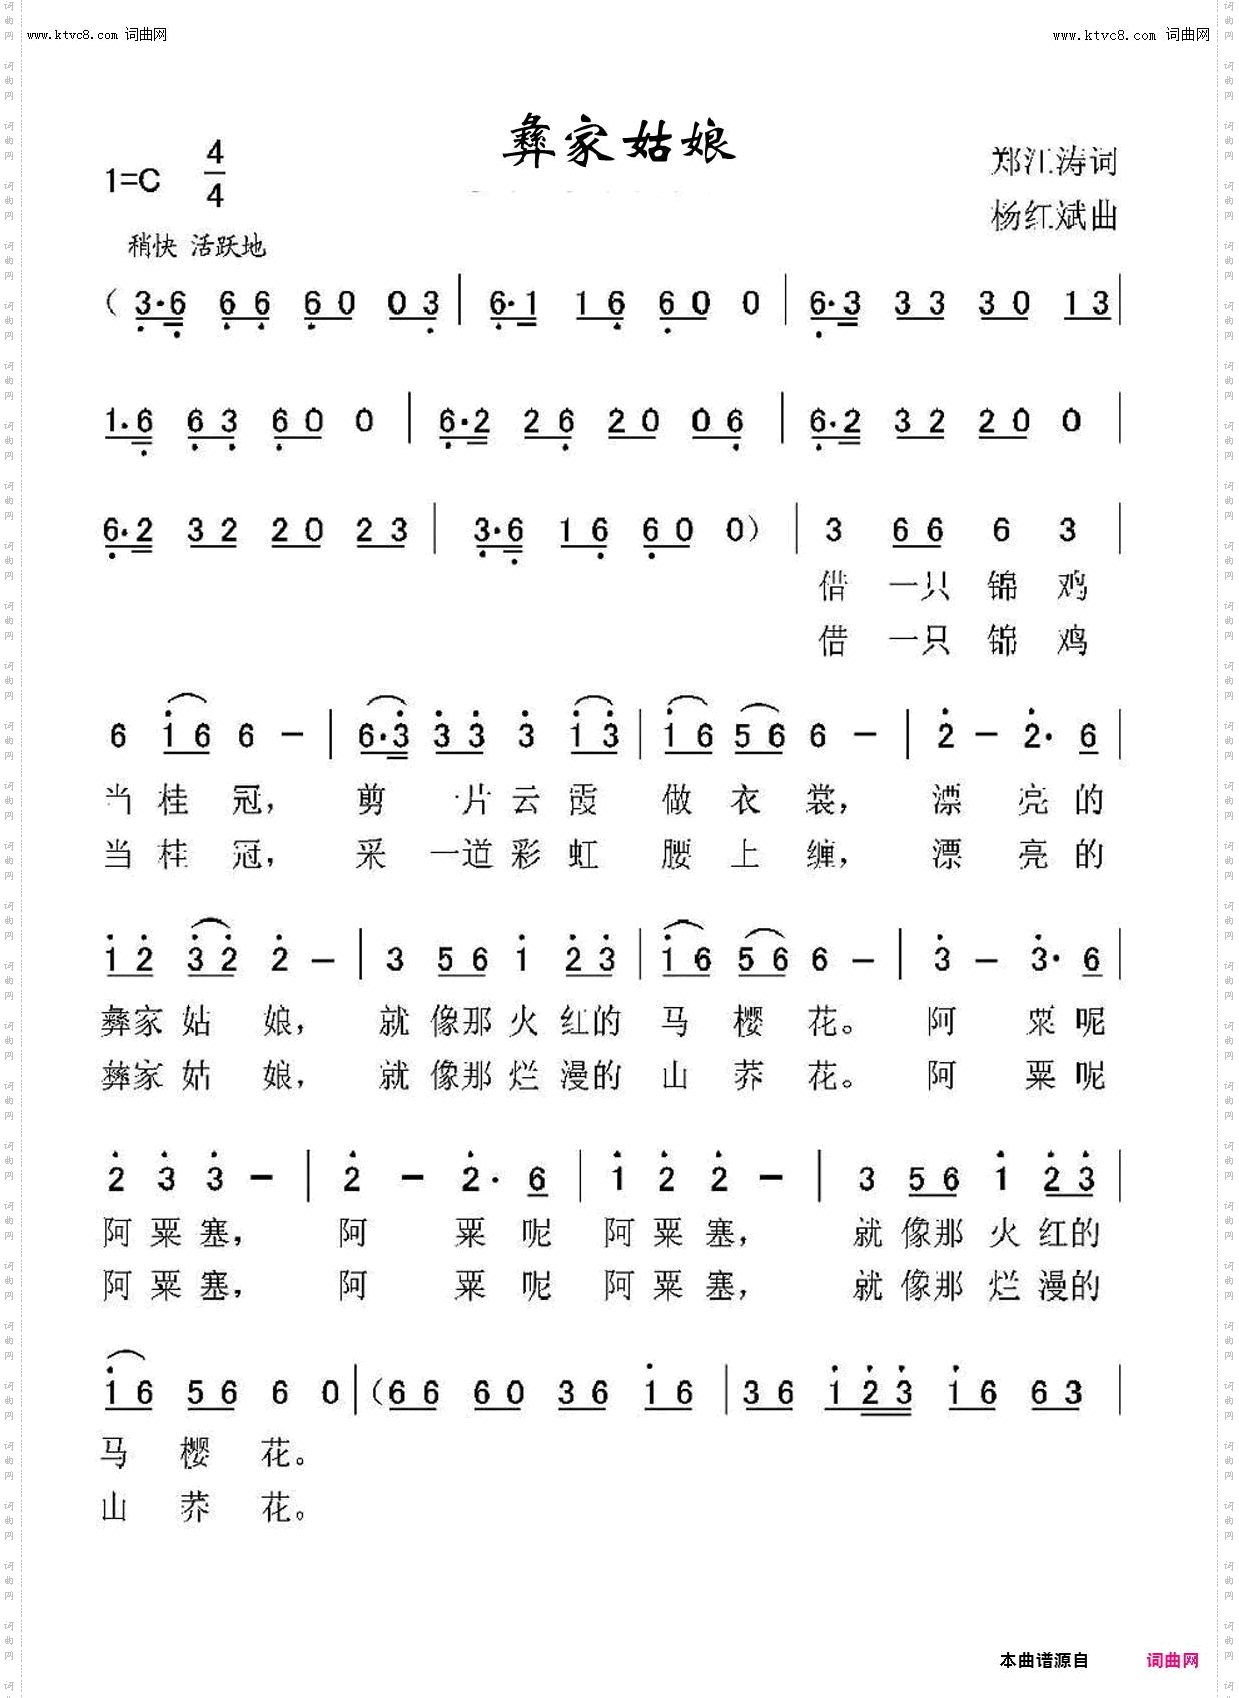 www.ktvc8.com 词曲网
www.ktvc8.com 词曲网
彝家姑娘
1=C 4/4
郑江涛词
杨红斌曲
稍快 活跃地
( 3·6 6 6 6 0 0 3 | 6·1 1 6 6 0 0 | 6·3 3 3 3 0 1 3 |
1·6 6 3 6 0 0 | 6·2 2 6 2 0 0 6 | 6·2 3 2 2 0 0 |
6·2 3 2 2 0 2 3 | 3·6 1 6 6 0 0 ) | 3 6 6 6 3 |
借 一只 锦 鸡
借 一只 锦 鸡
6 1 6 6 — | 6·3 3 3 3 1 3 | 1 6 5 6 6 — | 2 — 2· 6 |
当 桂 冠， 剪 一片 云 霞 做 衣 裳， 漂 亮 的
当 桂 冠， 采 一道 彩 虹 腰 上 缠， 漂 亮 的
1 2 3 2 2 — | 3 5 6 1 2 3 | 1 6 5 6 6 — | 3 — 3· 6 |
彝家 姑 娘， 就 像那 火 红的 马 樱 花。 阿 粟 呢
彝家 姑 娘， 就 像那 烂 漫的 山 荞 花。 阿 粟 呢
2 3 3 — | 2 — 2· 6 | 1 2 2 — | 3 5 6 1 2 3 |
阿 粟 塞， 阿 粟 呢 阿 粟 塞， 就 像那 火 红的
阿 粟 塞， 阿 粟 呢 阿 粟 塞， 就 像那 烂 漫的
1 6 5 6 6 0 | ( 6 6 6 0 3 6 1 6 | 3 6 1 2 3 1 6 6 3 |
马 樱 花。
山 荞 花。
本曲谱源自 词曲网